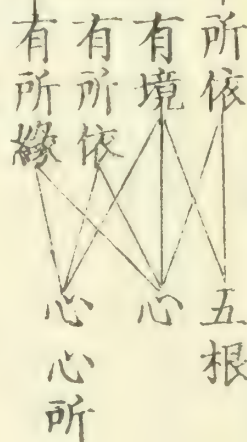 所依
有境
有所依
有所緣
五根
心
心心所